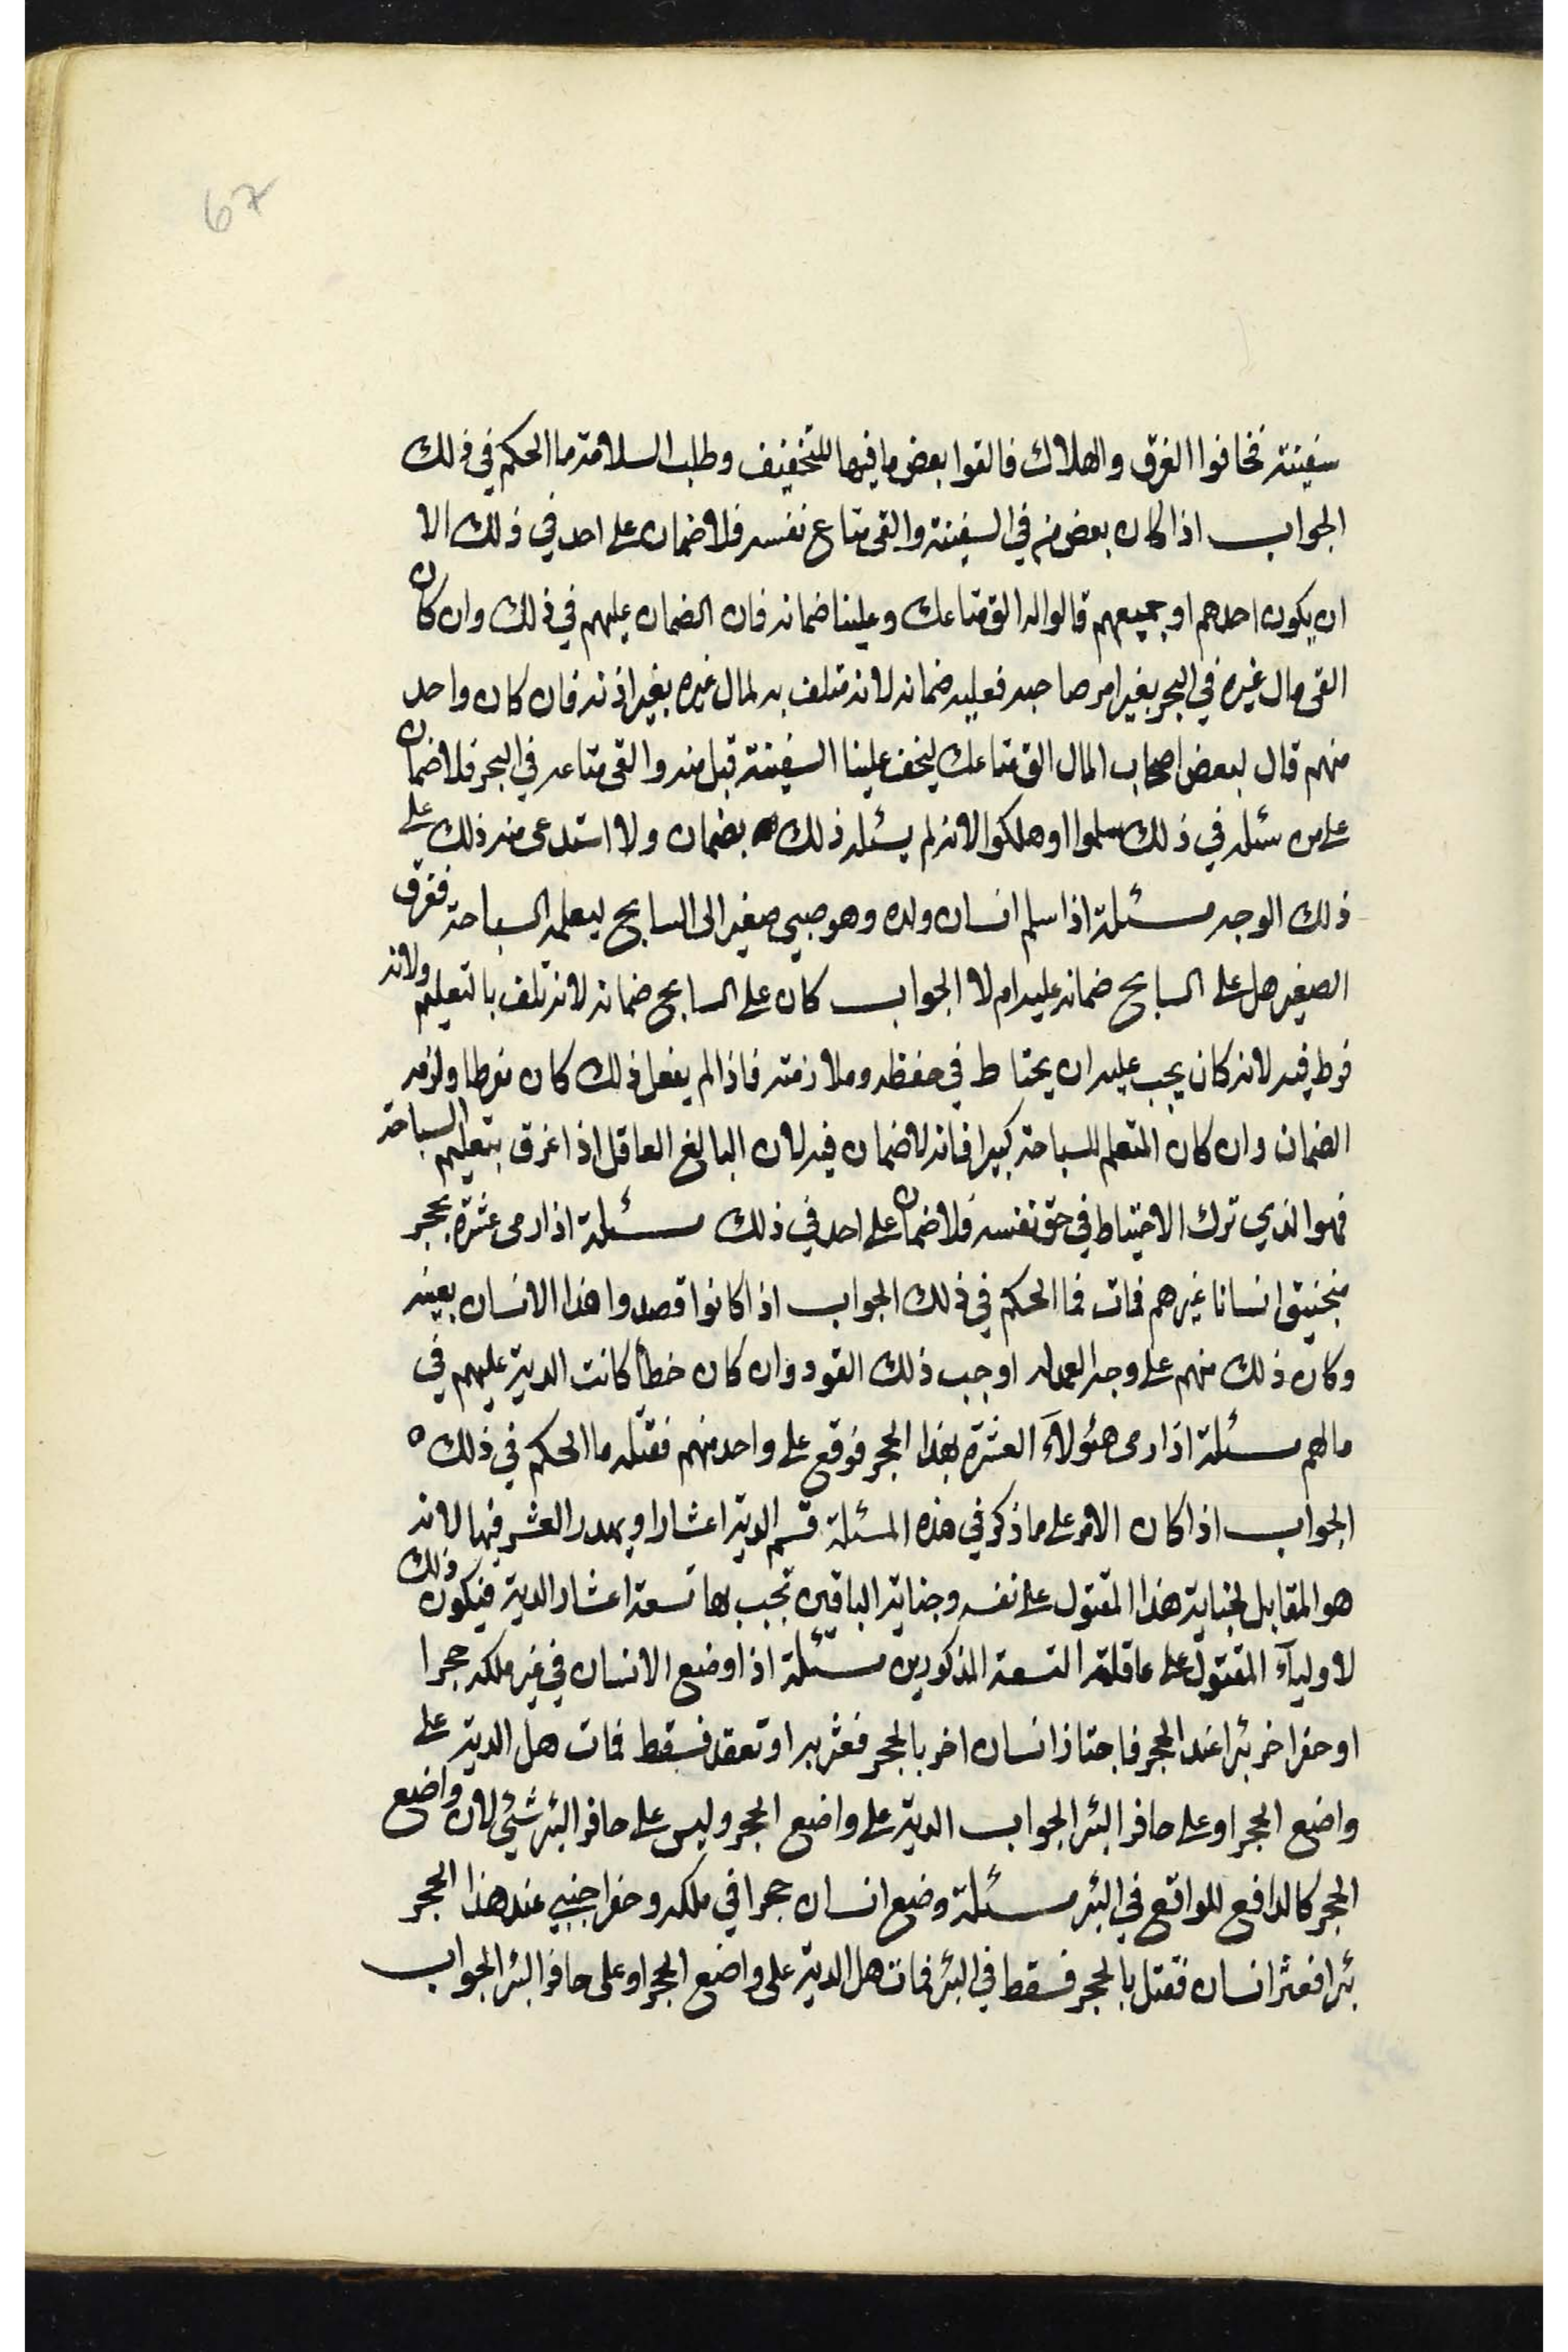 67
سفينته فخافوا الغرق والهلاك فالقوا بعض ما فيها للتخفيف وطلب السلامة ما الحكم في ذلك
الجواب اذا كان بعض من في السفينة والقى متاع نفسه فلا ضمان على احد في ذلك الا
ان يكون احدهم او جميعهم قالوا له الق متاعك وعلينا ضمانه فان الضمان عليهم في ذلك وان كان
القى مال غيره في البحر بغير امر صاحبه فعليه ضمانه لانه متلف به لمال غيره بغير اذنه فان كان واحد
منهم قال لبعض اصحاب المال الق متاعك ليخف علينا السفينة قبل منه والقى متاعه في البحر فلا ضمان
على من سئله في ذلك سلموا او هلكوا لانه لم يسئله ذلك بضمان ولا استدعى منه ذلك على
ذلك الوجه مسئلة اذا سلم انسان ولده وهو صبي صغير الى السابح ليعلمه السباحة فغرق
الصغير هل على السابح ضمانه عليه ام لا الجواب كان على السابح ضمانه لانه تلف بالتعليم ولانه
فرط فيه لانه كان يجب عليه ان يحتاط في حفظه وملازمته فاذا لم يفعل ذلك كان مفرطا ولزمه
الضمان وان كان المتعلم للسباحة كبيرا فانه لا ضمان فيه لان البالغ العاقل اذا غرق بتعليم السباحة
فهو الذي ترك الاحتياط في حق نفسه فلا ضمان على احد في ذلك مسئلة اذا رمى عشرة بحجر
منجنيق انسانا غيرهم فمات فما الحكم في ذلك الجواب اذا كانوا قصدوا هذا الانسان بعينه
وكان ذلك منهم على وجه العمد اوجب ذلك القود وان كان خطأ كانت الدية عليهم في
مالهم مسئلة اذا رمى هئولآء العشرة بهذا الحجر فوقع على واحد منهم فقتله ما الحكم في ذلك ه
الجواب اذا كان الامر على ما ذكر في هذه المسئلة قسم الدية اعشارا ويهدر العشر فيها لانه
هو المقابل لجناية هذا المقتول على نفسه وجناية الباقين تجب بها تسعة اعشار الدية فيكون ذلك
لاوليآء المقتول على عاقلة التسعة المذكورين مسئلة اذا وضع الانسان في غير ملكه حجرا
او حفر اخر بئرا عند الحجر فاجتاز انسان اخر بالحجر فعثر به او تعقد فسقط فمات هل الدية على
واضع الحجر او على حافر البئر الجواب الدية على واضع الحجر وليس على حافر البئر شئ لان واضع
الحجر كالدافع للواقع في البئر مسئلة وضع انسان حجرا في ملكه وحفر اجنبي عند هذا الحجر
بئرا فعثر انسان فقتل بالحجر فسقط في البئر فمات هل الدية على واضع الحجر او على حافر البئر الجواب